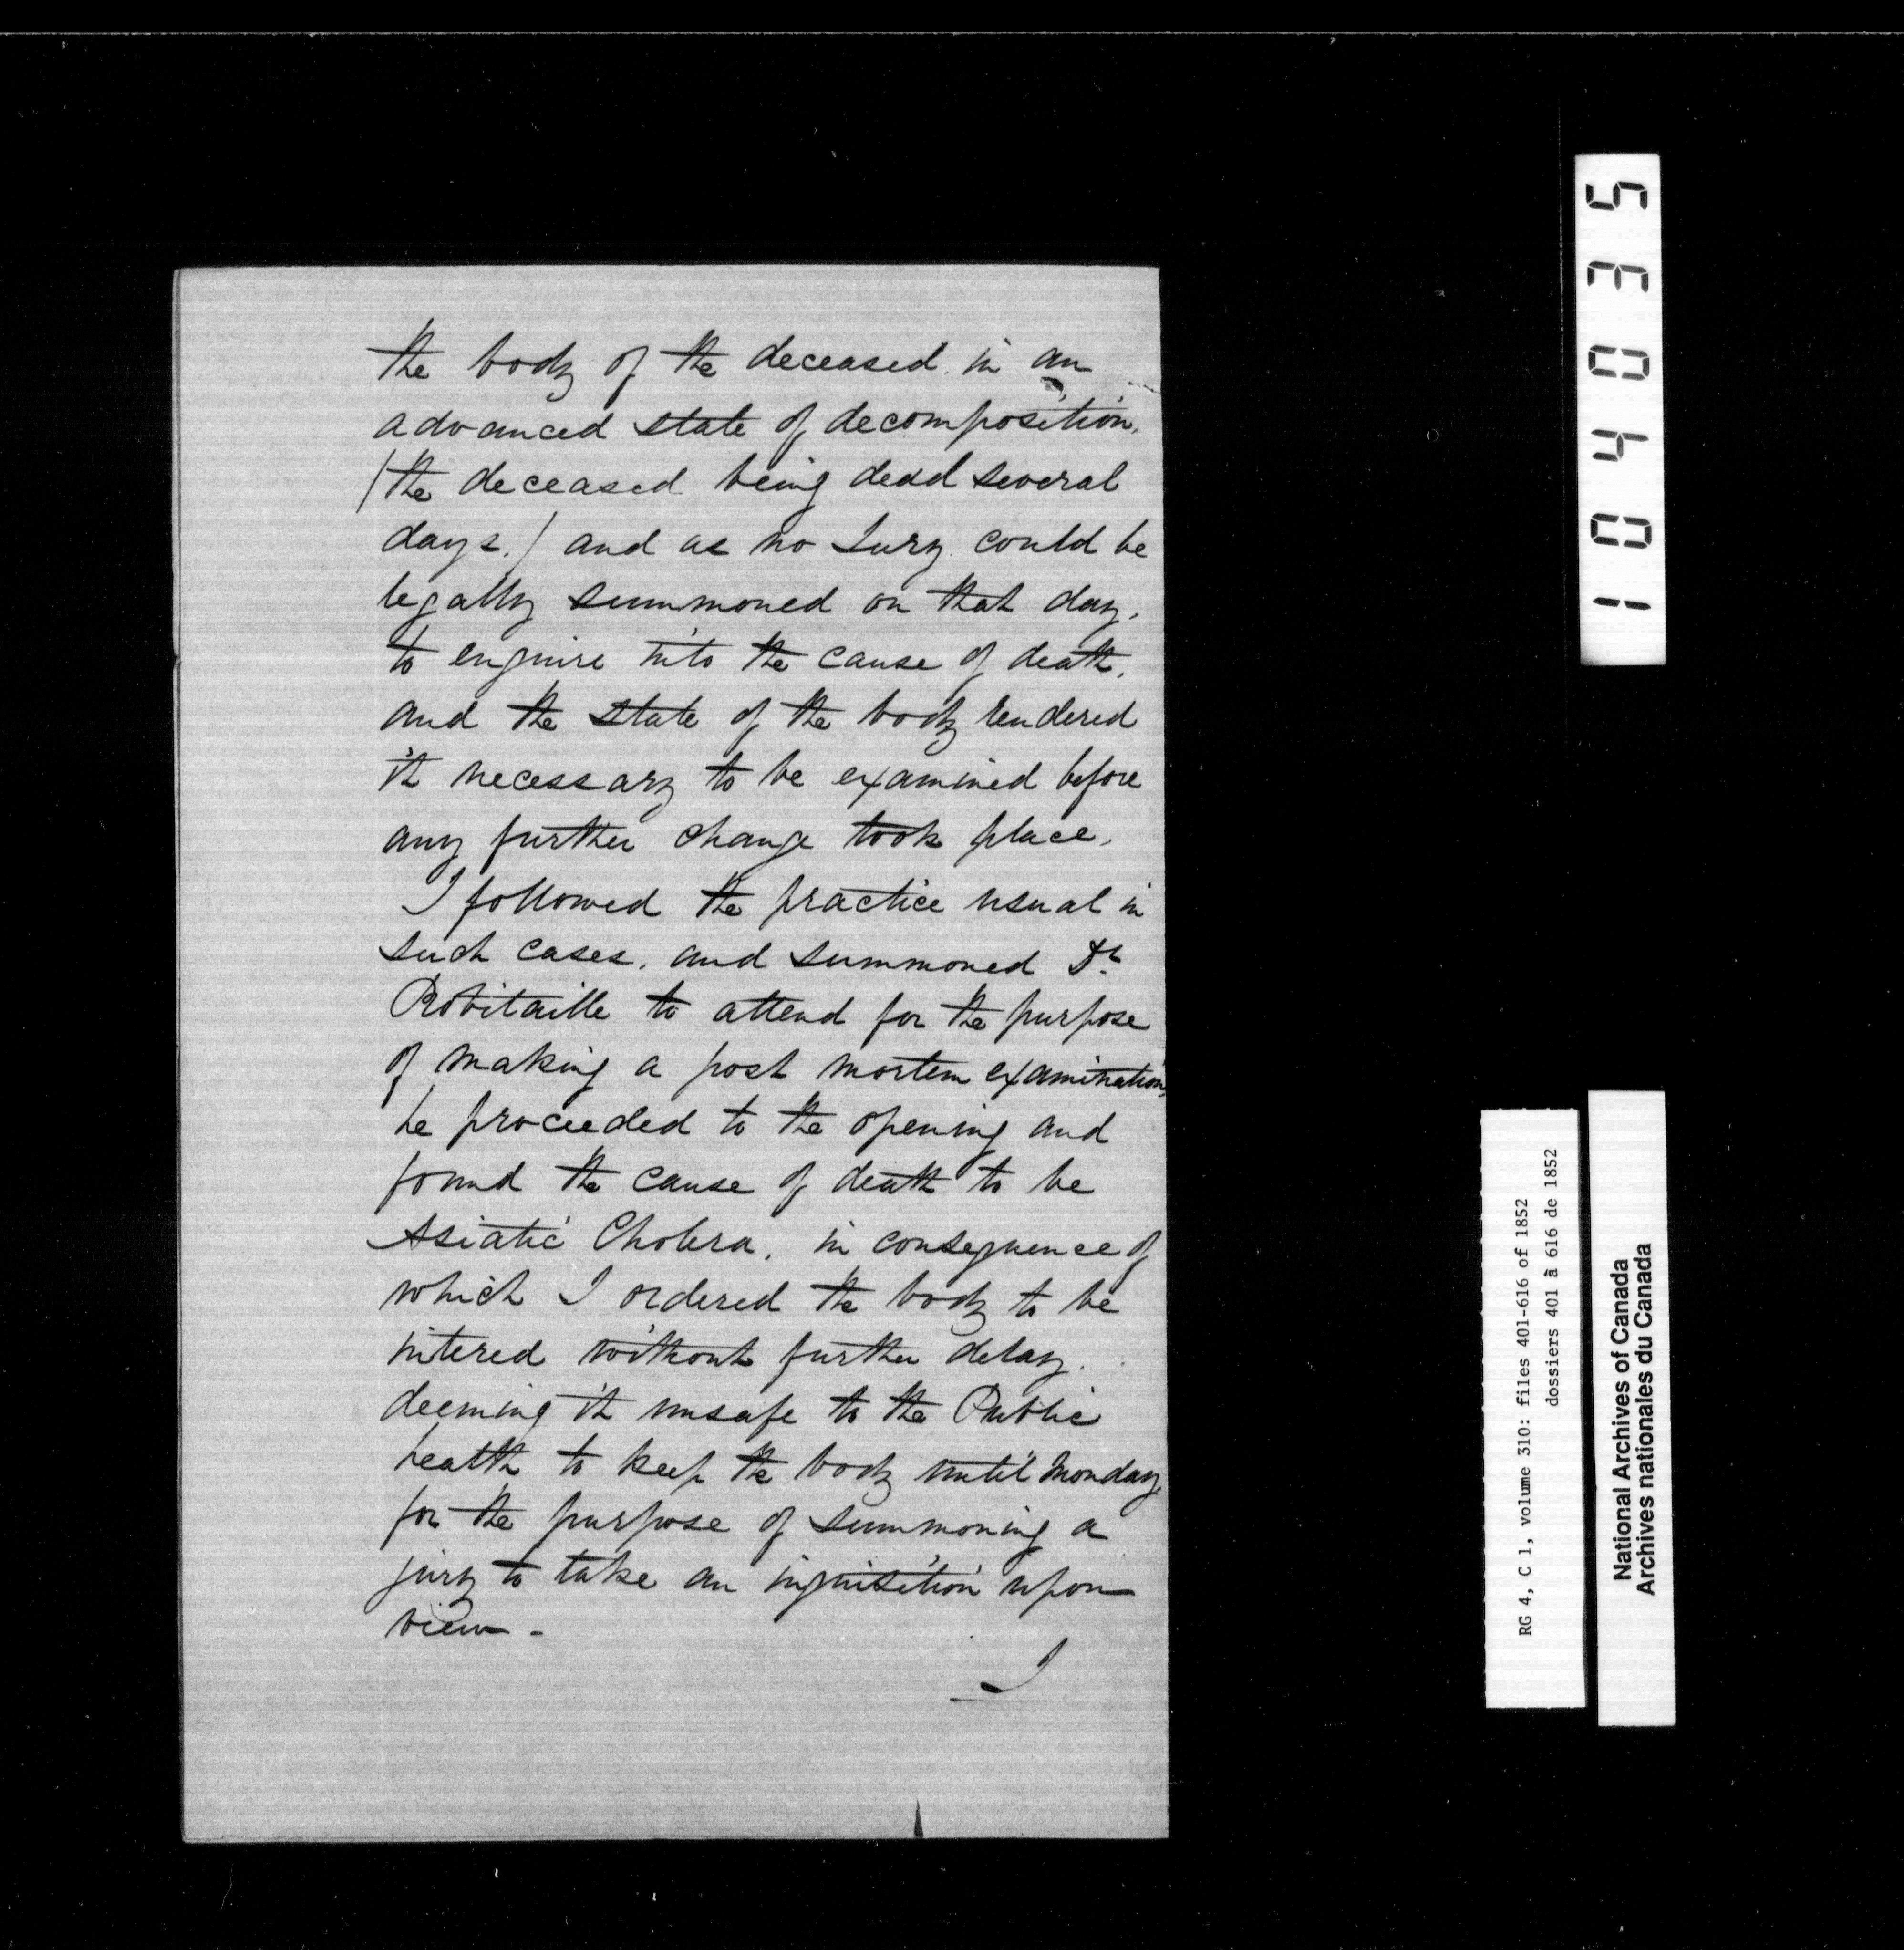 the body of the deceased in an
advanced state of decomposition,
(the deceased being dead several
days.) and as no Jury could be
legally summoned on that day,
to enquire into the cause of death,
and the state of the body rendered
it necessary to be examined before
any further change took place,
I followed the practice usual in
such cases, and summoned Dr.
Robitaille to attend for the purpose
of making a post mortem examination,
he proceeded to the opening and
found the cause of death to be
Asiatic Cholera, in consequence of
which I ordered the body to be
intered without further delay.
deeming it unsafe to the Public
health to keep the body until Monday,
for the purpose of summoning a
jury to take an inquisition upon
view -
I
104035
RG 4, C 1, volume 310: files 401-616 of 1852
dossiers 401 à 616 de 1852
National Archives of Canada
Archives nationales du Canada